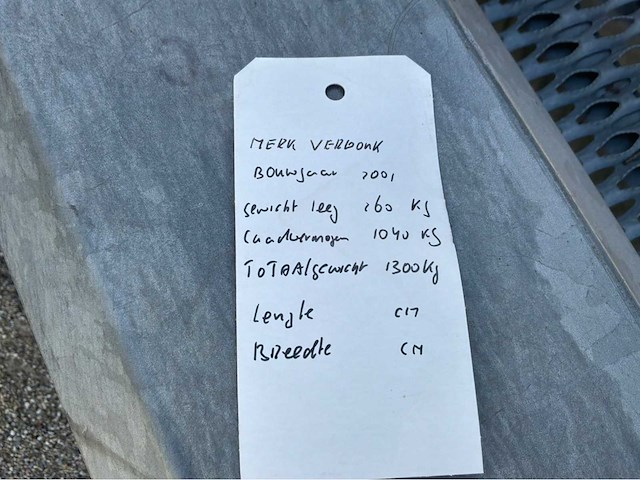 MERK VERDONK
BOUWJAAR 2001
gewicht leeg 260 Kg
Laadvermogen 1040 Kg
TOTAAlgewicht 1300Kg
Lengte CM
BREEdte CM